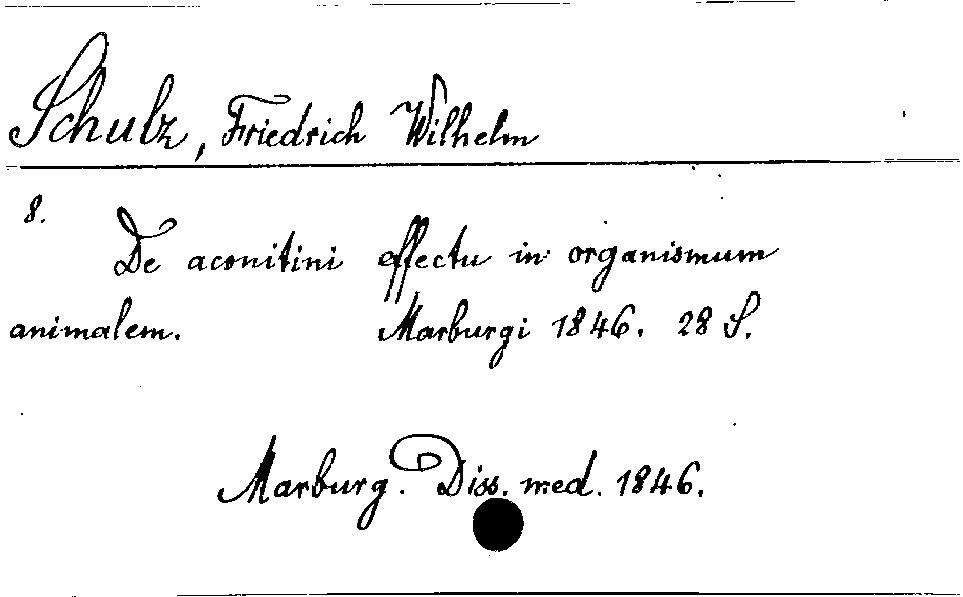 Schulz, Friedrich Wilhelm
8.
De aconitini effectu in organismum
animalem. Marburgi 1846. 28 S.
Marburg. Diss. med. 1846.